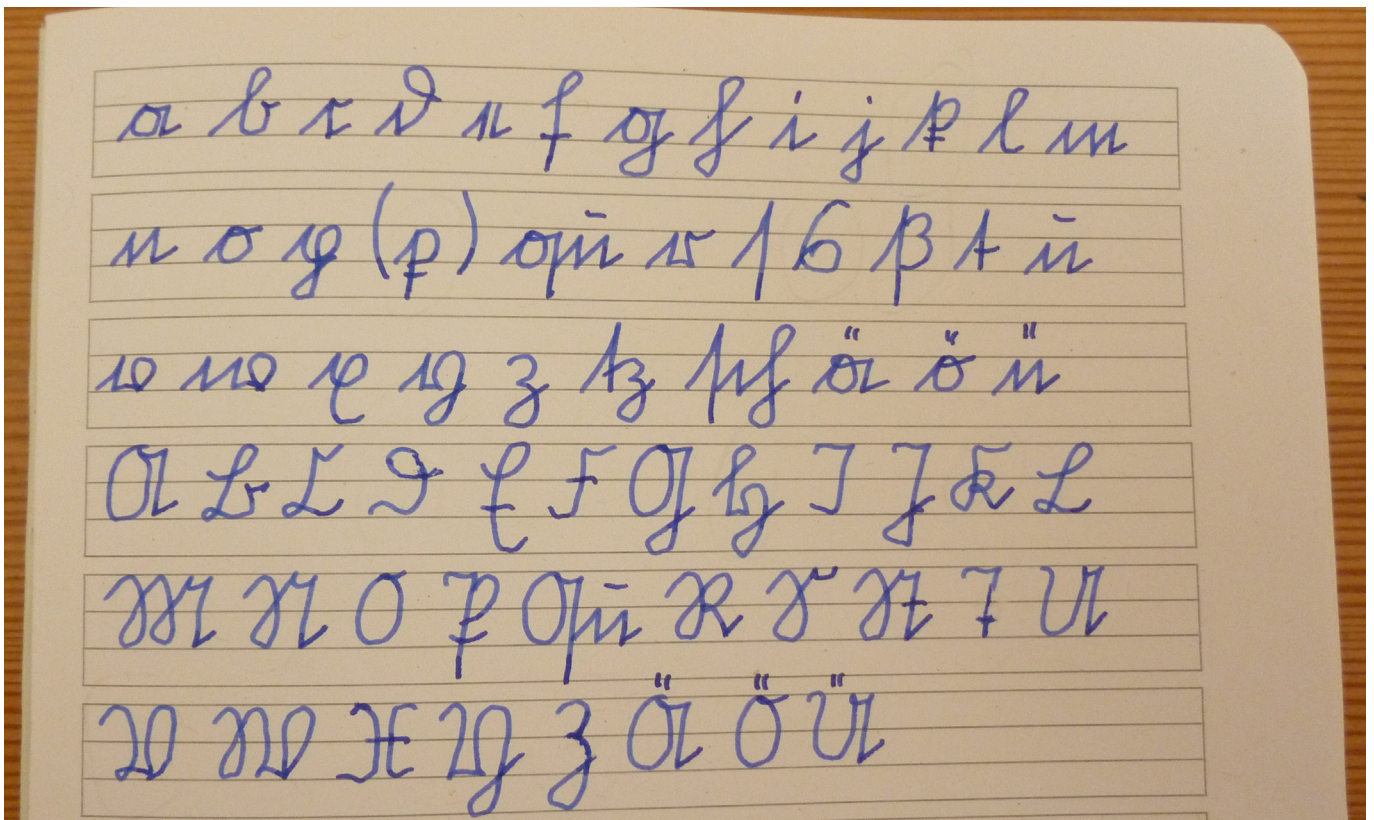 a b c d e f g h i j k l m
n o p (p) qu r ſ s ß t u
v w x y z tz ſch ä ö ü
A B C D E F G H I J K L
M N O P Qu R S St T U
V W X Y Z Ä Ö Ü